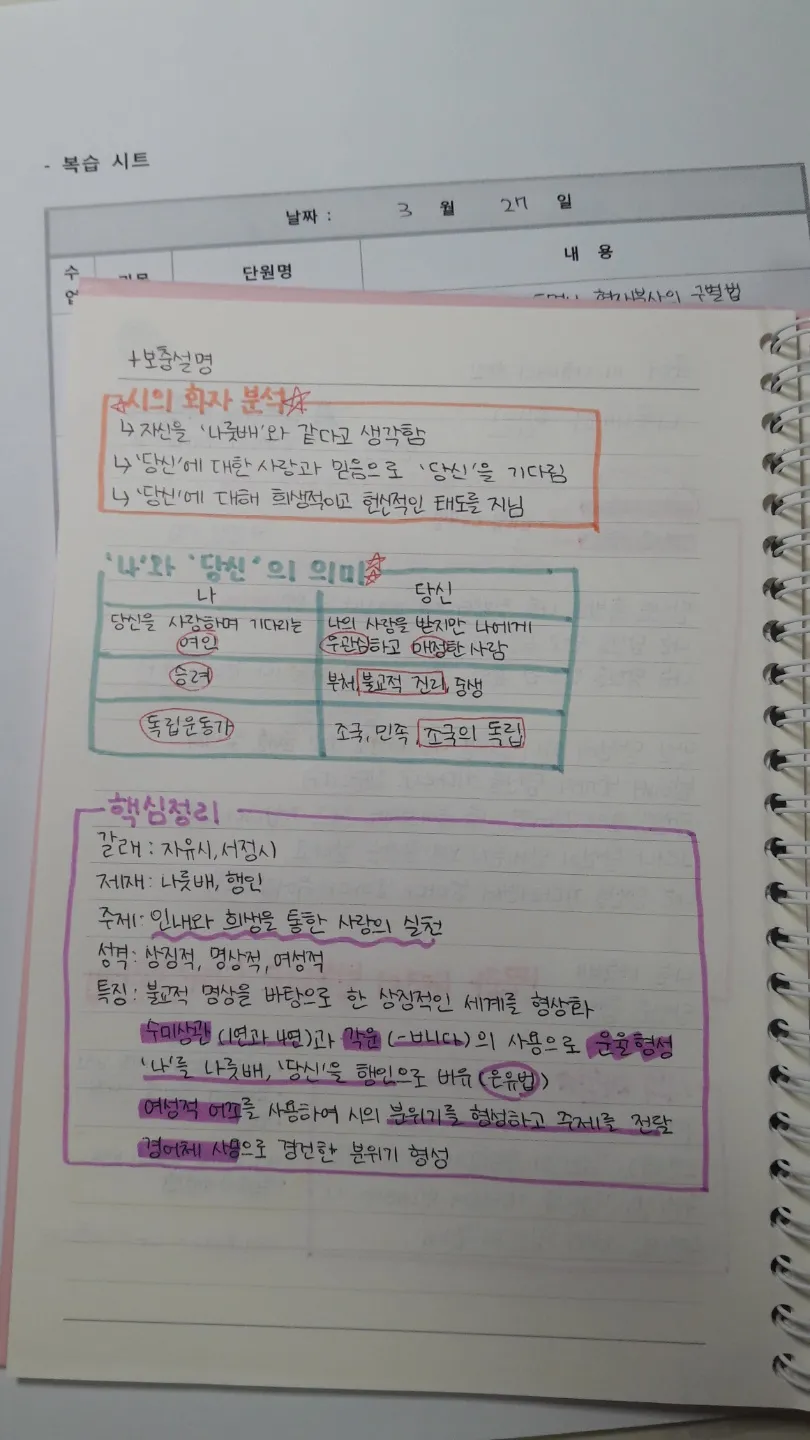 - 복습 시트
날짜 : 3 월 27 일
수 단원명 내 용
구별법
+보충설명
☆시의 화자 분석☆
↳ 자신을 '나룻배'와 같다고 생각함
↳ '당신'에 대한 사랑과 믿음으로 '당신'을 기다림
↳ '당신'에 대해 희생적이고 헌신적인 태도를 지님
'나'와 '당신'의 의미☆
나 당신
당신을 사랑하며 기다리는 여인
나의 사랑을 받지만 나에게
무관심하고 매정한 사람
승려 부처, 불교적 진리, 중생
독립운동가 조국, 민족, 조국의 독립
핵심정리
갈래 : 자유시, 서정시
제재: 나룻배, 행인
주제: 인내와 희생을 통한 사랑의 실천
성격: 상징적, 명상적, 여성적
특징: 불교적 명상을 바탕으로 한 상징적인 세계를 형상화
수미상관 (1연과 4연)과 각운 (-ㅂ니다)의 사용으로 운율형성
'나'를 나룻배, '당신'을 행인으로 비유 (은유법)
여성적 어조를 사용하여 시의 분위기를 형성하고 주제를 전달
경어체 사용으로 경건한 분위기 형성